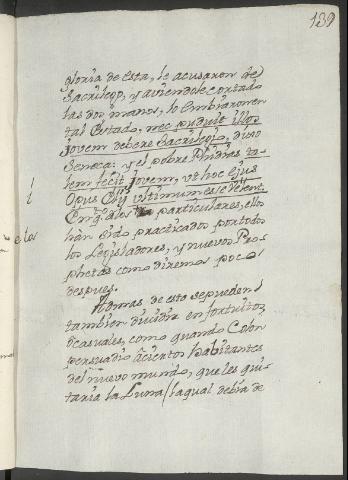 139
gloria de esta, le acusaron de
Sacrilego, y aviendole cortado
las dos manos, lo embiaron en
tal estado, nec puduit illos
Jovem debere Sacrilegio, dixo
Seneca: y el pobre Phidias ta-
lem fecit Jovem, ut hoc ejus
Opus Elij ultimum esse
En quanto los particulares, ellos
hàn sido practicados por todos
los Legisladores, y nuevos Pro-
phetas como diremos poco
despues.
Ademas de esto se pueden
tambien dividir en fortuitos,
ò casuales, como quando Colon
persuadiò à ciertos habitantes
del nuevo mundo, que les qui-
taria la Luna (la qual debia de